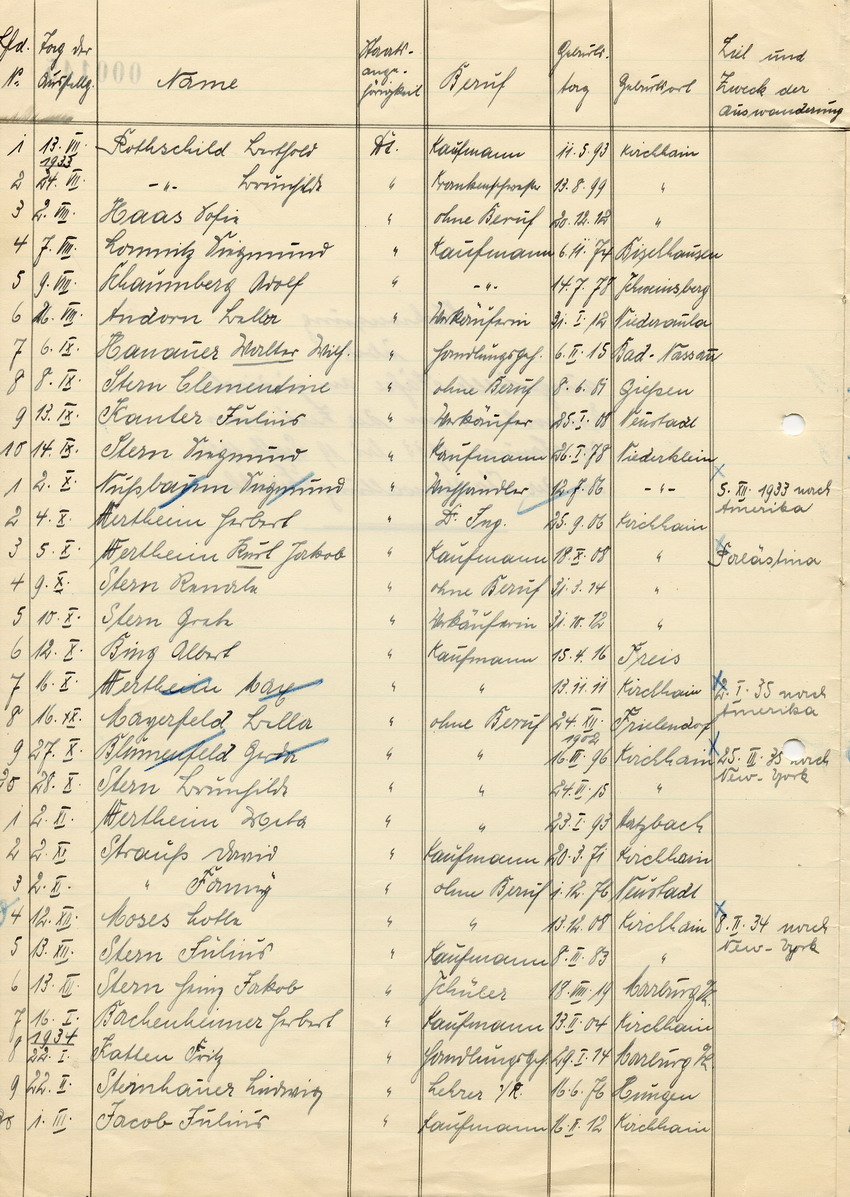 Lfd. Tag der Staats- Geburts- Ziel und
Nr. Ausstellg. Name ange- Beruf tag Geburtsort Zweck der
hörigkeit Auswanderung
1 13. VII. 1933 Rothschild Berthold Dt. Kaufmann 11.5.93 Kirchhain
2 24. VII. -"- Brunhilde " Krankenschwester 13.8.99 "
3 2. VIII. Haas Sofie " ohne Beruf 20.12.12 "
4 7. VIII. Lomnitz Siegmund " Kaufmann 6.11.74 Bischhausen
5 9. VIII. Schaumberg Adolf " -"- 14.7.78 Schweinsberg
6 26. VIII. Andorn Bella " Verkäuferin 31.I.12 Niederaula
7 6. IX. Hanauer Walter Wilh. " Handlungsgeh. 6.II.15 Bad-Nassau
8 8. IX. Stern Clementine " ohne Beruf 8.6.81 Gießen
9 13. IX. Kanter Julius " Verkäufer 25.I.08 Neustadt
10 14. IX. Stern Siegmund " Kaufmann 26.I.78 Niederklein
1 2. X. Nußbaum Siegmund " Viehhändler 12.7.86 -"- 5. XII. 1933 nach
Amerika
2 4. X. Wertheim Herbert " Dr. Ing. 25.9.06 Kirchhain
3 5. X. Wertheim Kurt Jakob " Kaufmann 18.II.08 " Palästina
4 9. X. Stern Renate " ohne Beruf 31.3.14 "
5 10. X. Stern Grete " Verkäuferin 31.10.12 "
6 12. X. Bing Albert " Kaufmann 15.4.16 Treis
7 16. X. Wertheim Max " " 13.11.11 Kirchhain 2. I. 35 nach
Amerika
8 16. XI. Mayerfeld Bella " ohne Beruf 24. XII. 1902 Frielendorf
9 27. X. Blumenfeld Gerda " " 16.III.96 Kirchhain 25. III. 35 nach
New-York
20 28. X. Stern Brunhilde " " 24.VI.15 "
1 2. XI. Wertheim Meta " " 23.I.93 Hatzbach
2 2. XI Strauß David " Kaufmann 20.3.71 Kirchhain
3 2. XI. " Fanny " ohne Beruf 1.12.76 Neustadt
4 12. XII. Moses Lotte " " 13.12.08 Kirchhain 8. II. 34 nach
New-York
5 13. XII. Stern Julius " Kaufmann 8.II.83 "
6 13. XII. Stern Heinz Jakob " Schüler 18.VIII.19 Marburg/L.
7 16. I. 1934 Bachenheimer Herbert " Kaufmann 13.II.04 Kirchhain
8 22. I. Katten Fritz " Handlungsgeh. 29.I.14 Marburg/L.
9 22. II. Sternhauer Ludwig " Lehrer i/R. 16.6.76 Hungen
30 1. III. Jacob Julius " Kaufmann 16.II.12 Kirchhain